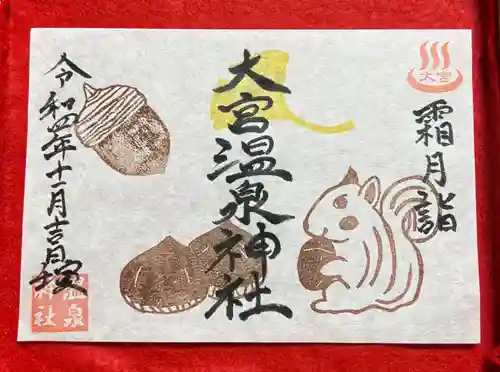 大宮
霜月詣
大宮温泉神社
令和四年十一月吉日
温泉
神社